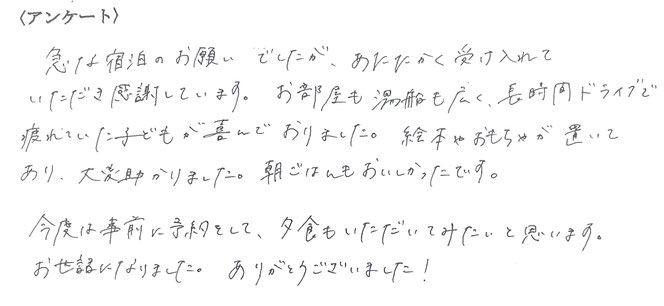 〈アンケート〉
急な宿泊のお願いでしたが、あたたかく受け入れて
いただき感謝しています。お部屋も湯船も広く、長時間ドライブで
疲れていた子どもが喜んでおりました。絵本やおもちゃが置いて
あり、大変助かりました。朝ごはんもおいしかったです。
今度は事前に予約をして、夕食もいただいてみたいと思います。
お世話になりました。ありがとうございました！